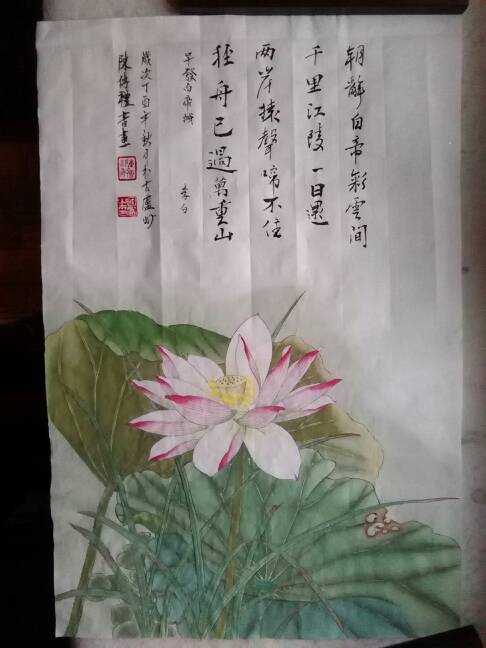 朝辭白帝彩雲間
千里江陵一日還
两岸猿聲啼不住
輕舟已過萬重山
早發白帝城
李白
歲次丁酉年秋月於古廬州
陳傳禮書畫